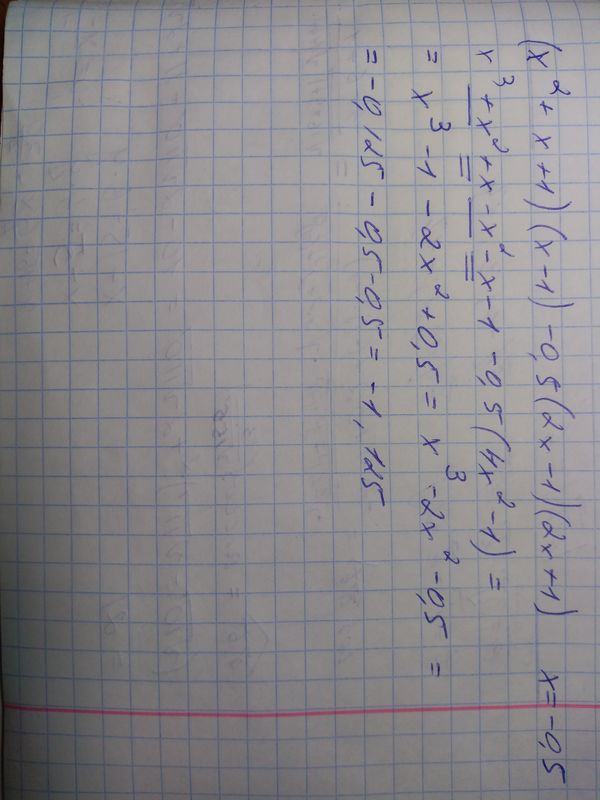 (x² + x + 1)(x - 1) - 0,5(2x - 1)(2x + 1)    x = -0,5
x³ + x² + x - x² - x - 1 - 0,5(4x² - 1) =
= x³ - 1 - 2x² + 0,5 = x³ - 2x² - 0,5 =
= -0,125 - 0,5 - 0,5 = -1,125